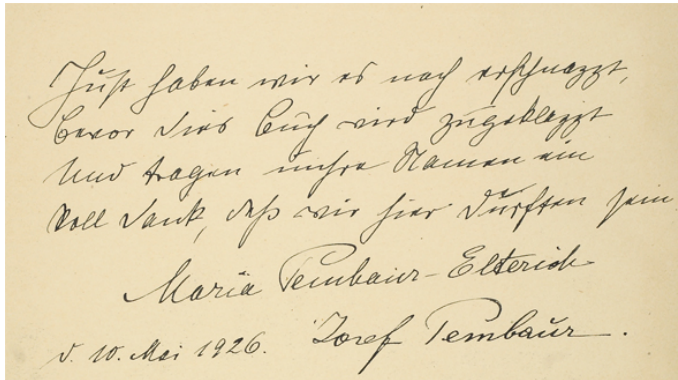 Just haben wir es noch erschnappt,
bevor dies Buch wird zugeklappt
Und tragen unsre Namen ein
Voll Dank, daß wir hier durften sein
Maria Pembaur-Elterich
d. 10. Mai 1926. Josef Pembaur.